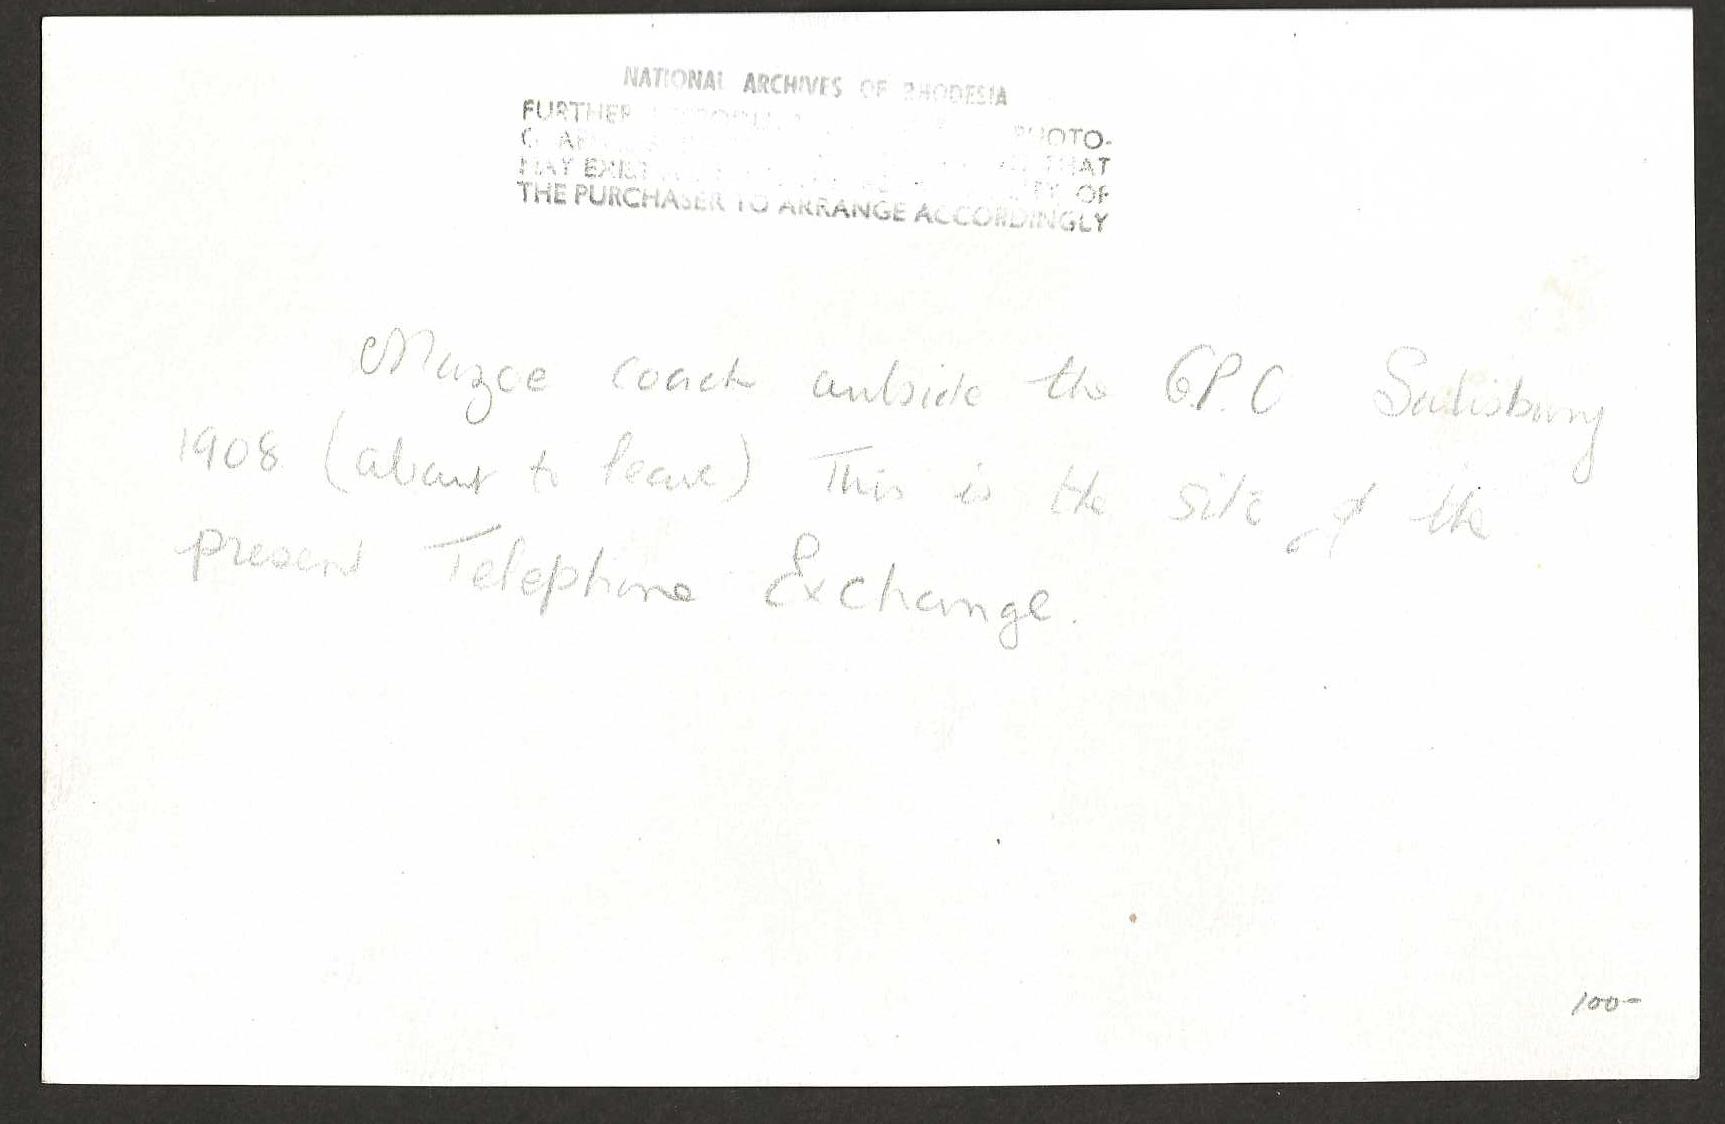 NATIONAL ARCHIVES OF RHODESIA
FURTHER PHOTO-
MAY EXIST THAT
OF
THE PURCHASER TO ARRANGE ACCORDINGLY
Mazoe coach outside the G.P.O Salisbury
1908 (about to leave) This is the site of the
present Telephone Exchange.
100-